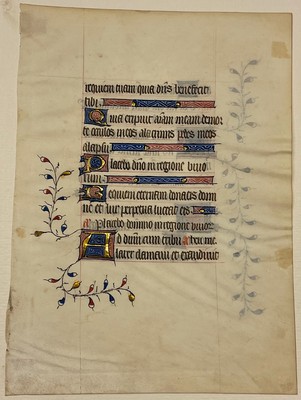 requiem tuam quia dñs benefecit
tibi
Quia eripuit aīam meam de mor
te oculos meos a lacrimis pedes meos
a lapsu
Placebo dño in regione vivo
rum
Requiem eternam dona eis domi
ne et lux perpetua luceat eis
añ Placebo domino in regione vivor
Ad dñm cum tribularer
laret clamavi et exaudivit